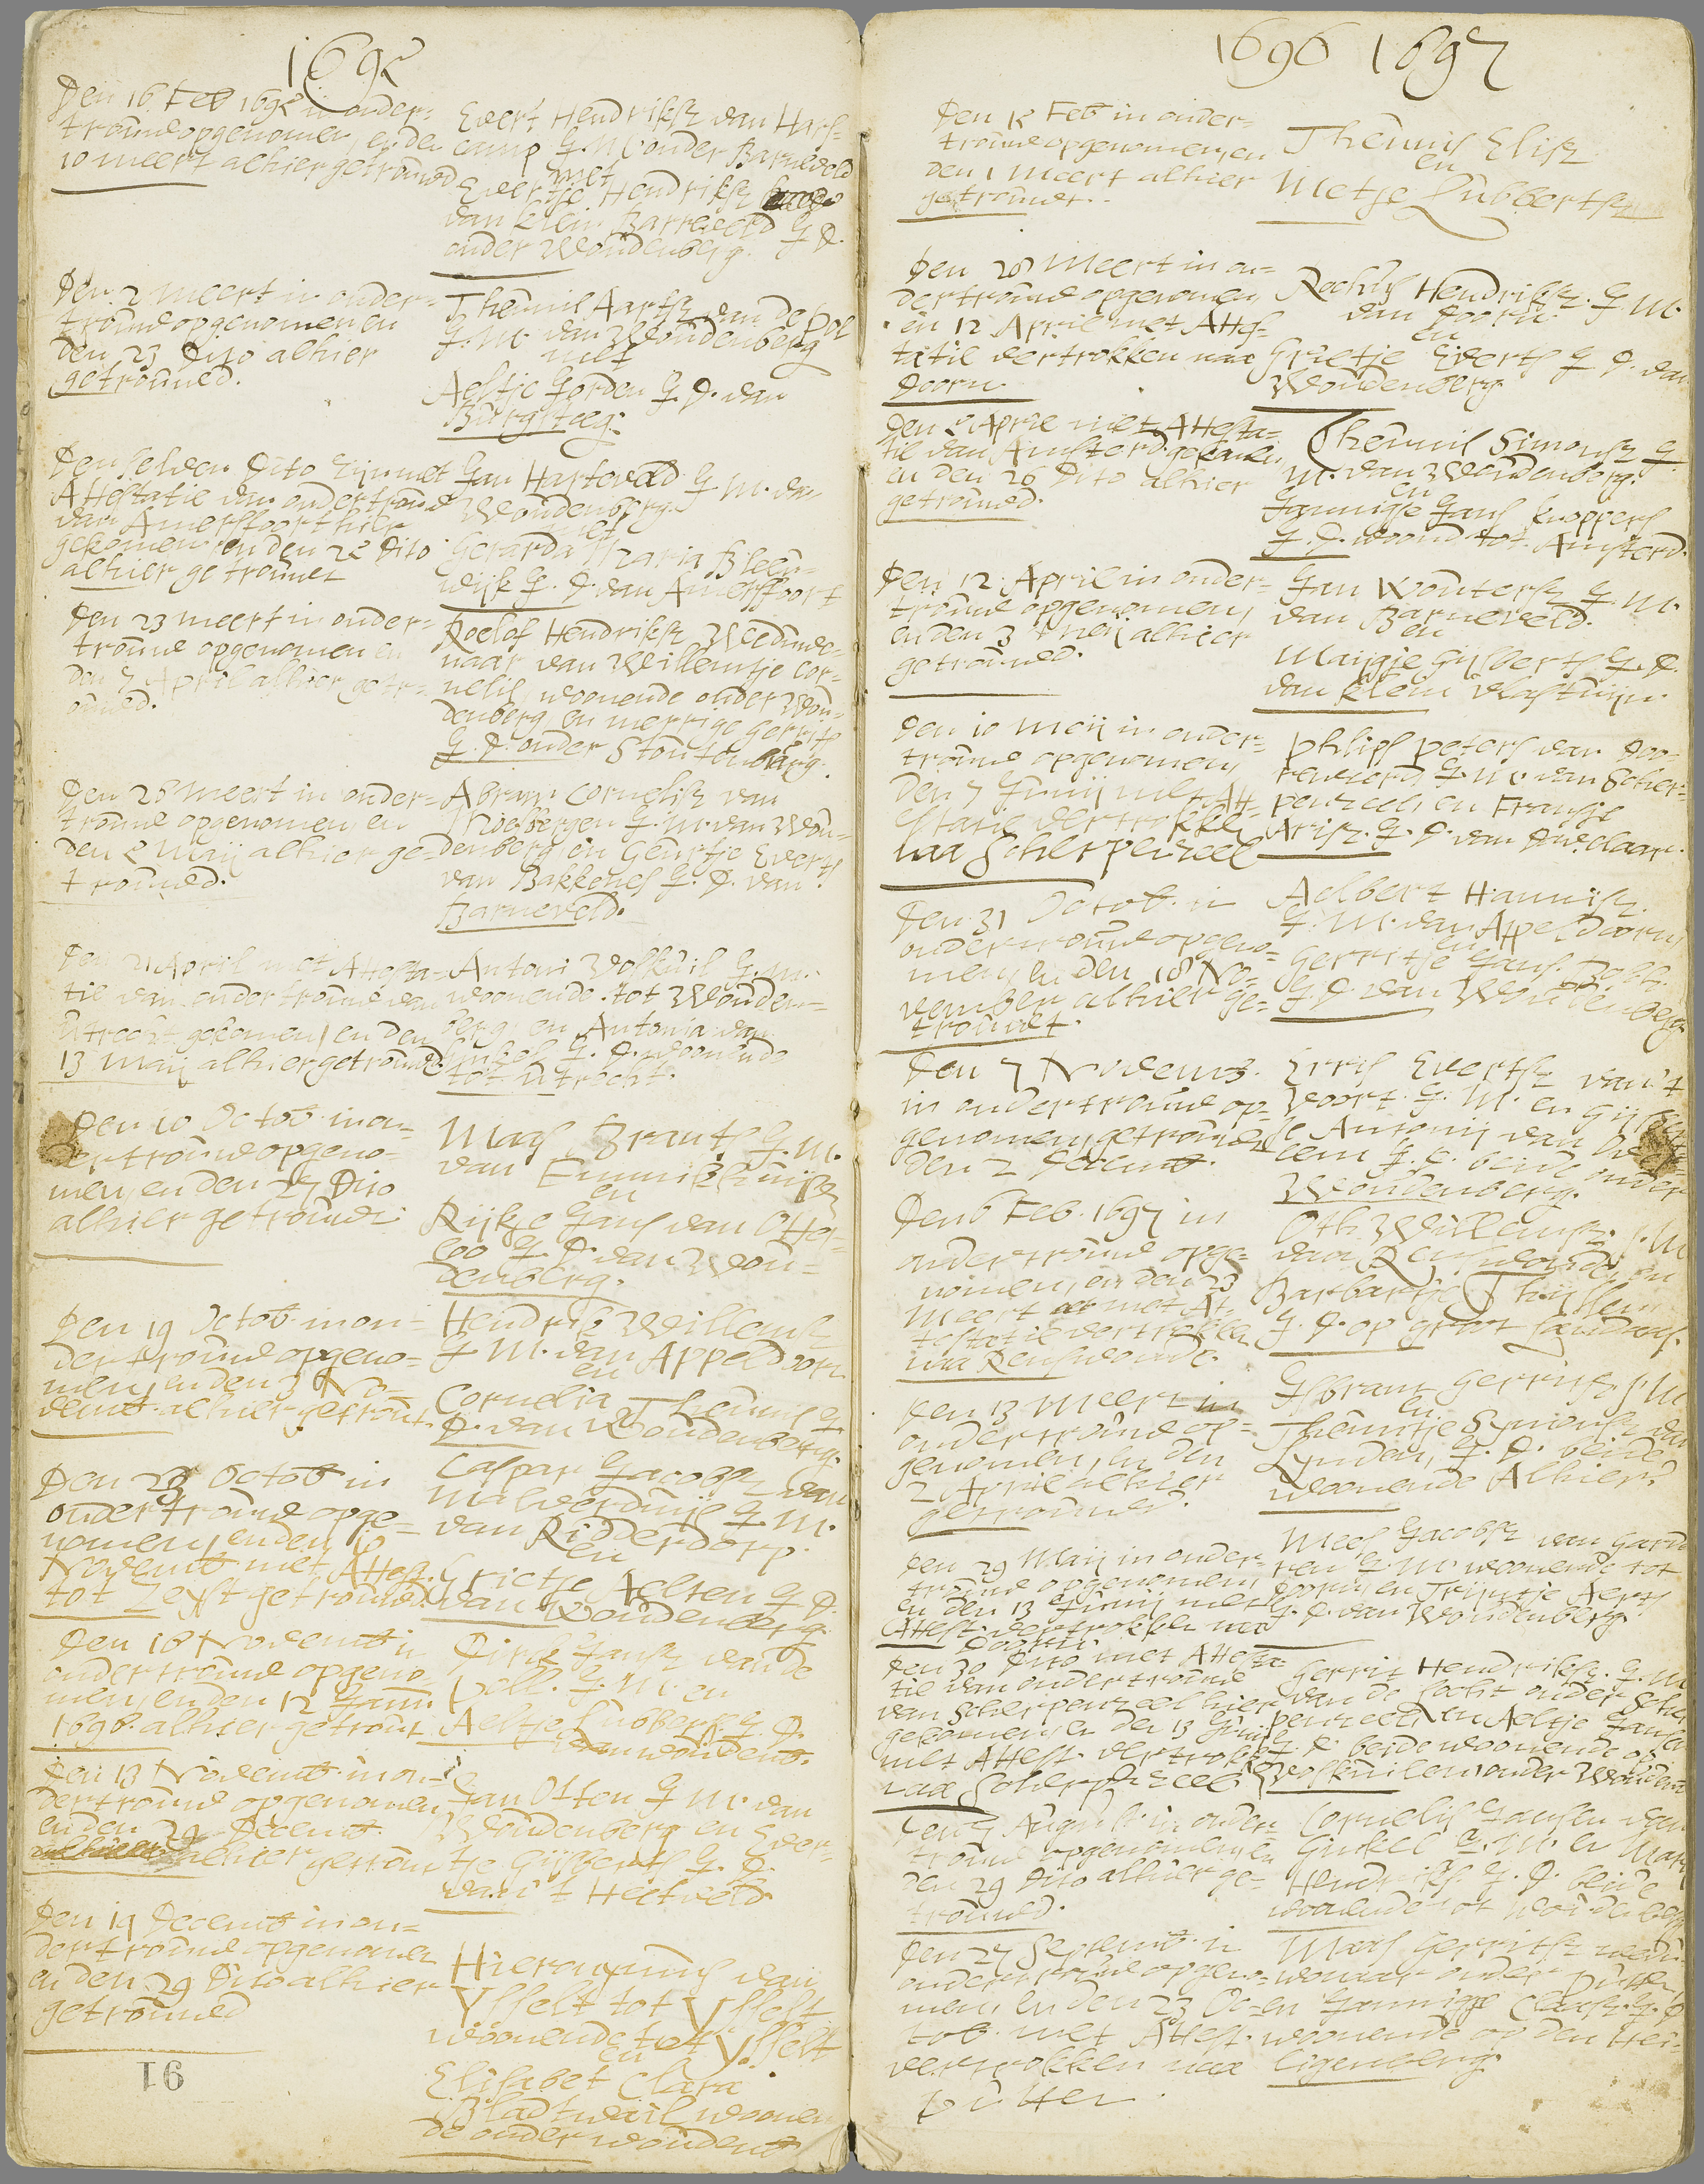 1695
Den 16 Feb 1695 in onder=
trouwe opgenomen, en den
10 meert alhier getrouwd
Evert Hendriksz van Hars=
camp J. M. onder Barneveld
met
Evertje Hendriksz
van klein Barneveld J. D.
onder Woudenberg.
Den 2 meert in onder=
trouwe opgenomen en
den 23 Dito alhier
getrouwed.
Theunis Aartsz van de Pol
J. M. van Woudenberg
met
Aeltje Jorden J. D. van
Burgsteeg.
Den selven Dito zijn met
Attestatie van ondertrouwe
van Amersfoort hier
gekomen, en den 25 Dito
alhier getrouwt
Jan Harteveld J. M. van
Woudenberg.
met
Gerarda Maria Bleeu=
wijk J. D. van Amersfoort
Den 23 meert in onder=
trouwe opgenomen en
den 7 April alhier getr=
ouwed.
Roelof Hendriksz Weduwe=
naar van Willemtje Cor=
nelis, woonende onder Wou=
denberg en merrige Gerrits
J. D. onder Stoutenburg.
Den 28 meert in onder=
trouwe opgenomen, en
den 5 Maij alhier ge=
trouwed.
Abram Cornelisz van
Moesbergen J. M. van Wou=
denberg en Geurtje Everts
van Bakkenes J. D. van
Barneveld.
Den 21 April met Attesta=
tie van ondertrouwe van
Utrecht gekomen, en den
13 Maij alhier getrouwd.
Antoni Voskuil J. M.
woonende tot Wouden=
berg, en Antonia van
J. D. woonende
tot Utrecht.
Den 10 Octob. in on=
dertrouwe opgeno=
men, en den 27 Dito
alhier getrouwt.
Maes Brants J. M.
van Emmikhuijsen
en
Rijkje Jans van Otter=
loo J. D. van Wou=
denberg.
Den 19 Octob. in on=
dertrouwe opgeno=
men, en den 3 No=
vemb. alhier getrout.
Hendrik Willemsz
J. M. van Appeldoorn
en
Cornelia Theunis J.
D. van Woudenberg.
Den 28 Octob in
ondertrouwe opge=
nomen, en den 10
Novemb met Attest.
tot Zeijst getrouwd.
Caspar Jacobsz van
Malverdinije J. M.
van Ridderdorp.
en
Grietje Aelten J. D.
van Woudenberg
Den 10 Novemb in
ondertrouwe opgeno
men, en den 12 Janu.
1696. alhier getrout
Dirk Jansz van de
poll. J. M. en
Aeltje Lubberts J. D.
van woudenb.
Den 13 Novemb in on=
dertrouwe opgenomen
en den 29 Decemb.
alhier getrout
Jan Otten J M. van
Woudenberg en Ever=
tje Gijsberts J. D.
van 't Heetveld
Den 19 Decemb in on=
dertrouwe opgenomen
en den 29 Dito alhier
getrouwed
Hieronymus van
Ysselt tot Ysselt
woonende tot Ysselt
en
Elisabet Clara
woonen
de onder woudenb
16
1696 1697
Den 15 Feb in onder=
trouwe opgenomen, en
den 1 Meert alhier
getrouwt.
Theunis Elisz
en
Metje Lubbertsz
Den 28 Meert in on=
dertrouwe opgenomen,
en 12 April met Attes=
tatie vertrokken naa
Doorn
Rochus Hendriksz. J. M.
van Doorn.
en
Grietje Everts J. D. van
Woudenberg
Den 5 April met Attesta=
tie van Amsterd. gekomen,
en den 26 Dito alhier
getrouwed.
Theunis Simonsz J.
M. van Woudenberg.
en
Jannigje Jans knoppers
J. D. woond tot Amsterd.
Den 12 April in onder=
trouwe opgenomen,
en den 3 Meij alhier
getrouwed.
Jan Woutersz J. M.
van Barneveld.
en
Maijgje Gijsberts J. D.
van klein
Den 10 Meij in onder=
trouwe opgenomen,
Den 7 Junij met At=
statie vertrokken
naa Scherpenzeel
Philips peters van Doo=
reweerd J. M. van Scher=
penzeel, en Fransje
Arisz. J. D. van Davelaar.
Den 31 Octob. in
ondertrouwe opgeno=
men, en den 18 No=
vember alhier ge=
trouwt.
Aelbert Hannisz.
J. M. van Appeldoorn
en
Gerritje Jans.
J. D. van Woudenberg
Den 7 Novemb.
in ondertrouwe op=
genomen, getrouwd
den 2 Decemb.
Erris Evertsz van't
Voort. J. M. en Gijsber
je Antonij van
J. D. beide onder
Woudenberg.
Den 6 Feb. 1697 in
ondertrouwe opge=
nomen, en den 23
Meert met At=
testatie vertrokken
naa Renswoude.
Oth Willemsz. J. M
van Renswoude en
Barbartje Thijssen
J. D. op groot Landaas.
Den 13 Meert in
ondertrouwe op=
genomen, en den
2 April alhier
getrouwed.
Isbrant Gerritsz J. M
en
Theuntje Symonsz van
Lynden, J. D. beide
woonende Alhier.
Den 29 Maij in onder=
trouwe opgenomen,
en den 13 Junij met
Attest. vertrokken naa
Doorn.
Mees Jacobsz van Gard
ren J. M. woonende tot
Doorn, en Trijntje Aerts
J. D. van Woudenberg
Den 30 Dito met Attesta
tie van ondertrouwe
van Scherpenzeel hier
gekomen, en den 13 Junij
met Attest. vertrokken
naa Scherpenzeel
Gerrit Hendriksz. J. M
van de Locht onder Scher
penzeel, en Aeltje Jans
J. D. beide woonende op
Voskuilen, onder Woudenb
Den 7 August. in onder=
trouwe opgenomen, en
den 29 Dito alhier ge=
trouwed.
Cornelis Jansen van
Ginkel J. M. en Mary
Hendriks. J. D. beide
woonende tot woudenberg
Den 27 Septemb. in
ondertrouwe opgeno=
men, en den 23 Oc=
tob. met Attest.
vertrokken naa
putten
Maes Gerritsz wedu=
wenaar onder putten,
en Jannigje Claesz. J. D
woonende op den Hei=
ligenberg.